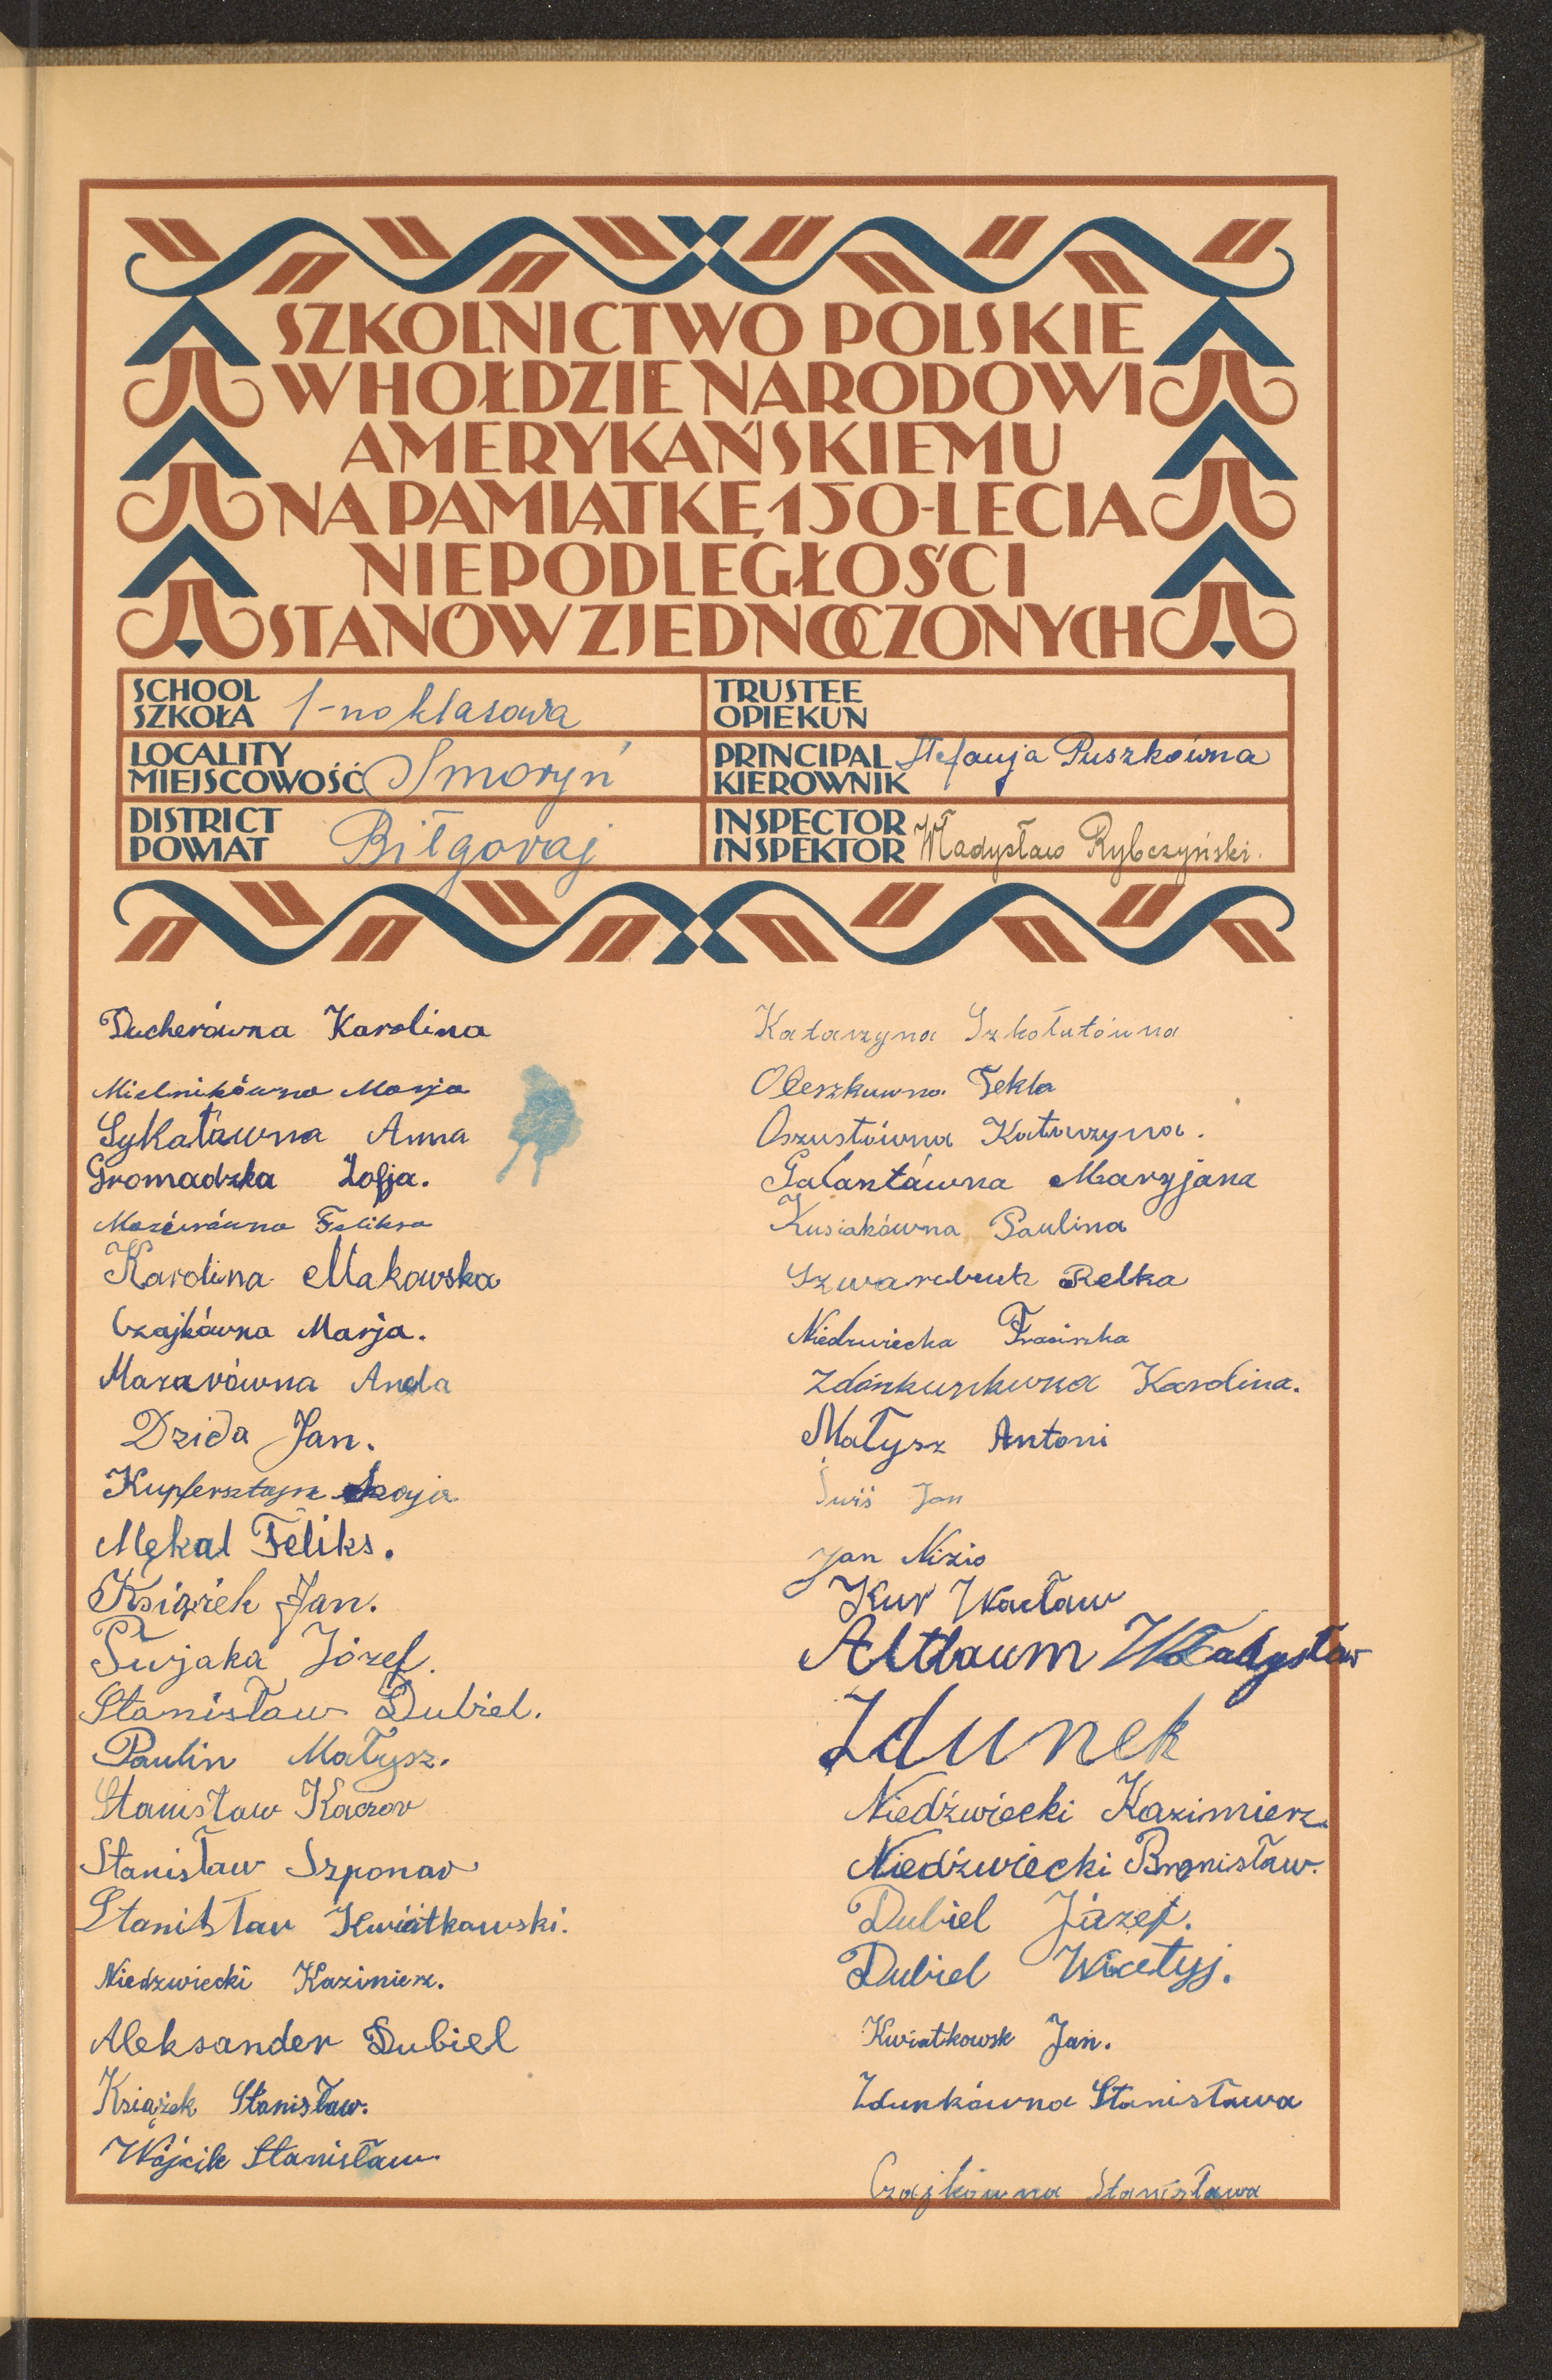 SZKOLNICTWO POLSKIE
W HOŁDZIE NARODOWI
AMERYKAŃSKIEMU
NA PAMIĄTKĘ 150-LECIA
NIEPODLEGŁOŚCI
STANÓW ZJEDNOCZONYCH
SCHOOL
SZKOŁA 1-no klasowa
TRUSTEE
OPIEKUN
LOCALITY
MIEJSCOWOŚĆ Smoryń
PRINCIPAL
KIEROWNIK Stefanja Puszkówna
DISTRICT
POWIAT Biłgoraj
INSPECTOR
INSPEKTOR Władysław Rybczyński.
Ducherówna Karolina
Mielnikówna Marja
Sykałówna Anna
Gromadzka Zofja.
Mazurówna Feliksa
Karolina Makowska
Czajkówna Marja.
Mazurówna Aniela
Dzida Jan.
Kupfersztajn
Mękal Feliks.
Książek Jan.
Świjaka Józef.
Stanisław Dubiel.
Paulin Małysz.
Stanisław Kaczor
Stanisław Szponar
Stanisław Kwiatkowski.
Niedzwiecki Kazimierz.
Aleksander Dubiel
Książek Stanisław.
Wójcik Stanisław
Katarzyna Szkołutówna
Oleszkuwna Tekla
Oszustówna Katarzyna.
Galantówna Maryjana
Kusiakówna Paulina
Szwarcbuch Relka
Niedzwiecka
Karolina.
Małysz Antoni
Jan
Jan Nizio
Kur Wacław
Altbaum Władysław
Zdunek
Niedźwiecki Kazimierz.
Niedźwiecki Bronisław.
Dubiel Józef.
Dubiel Wicetyj.
Kwiatkowsk Jan.
Zdunkówna Stanisława
Czajkówna Stanisława